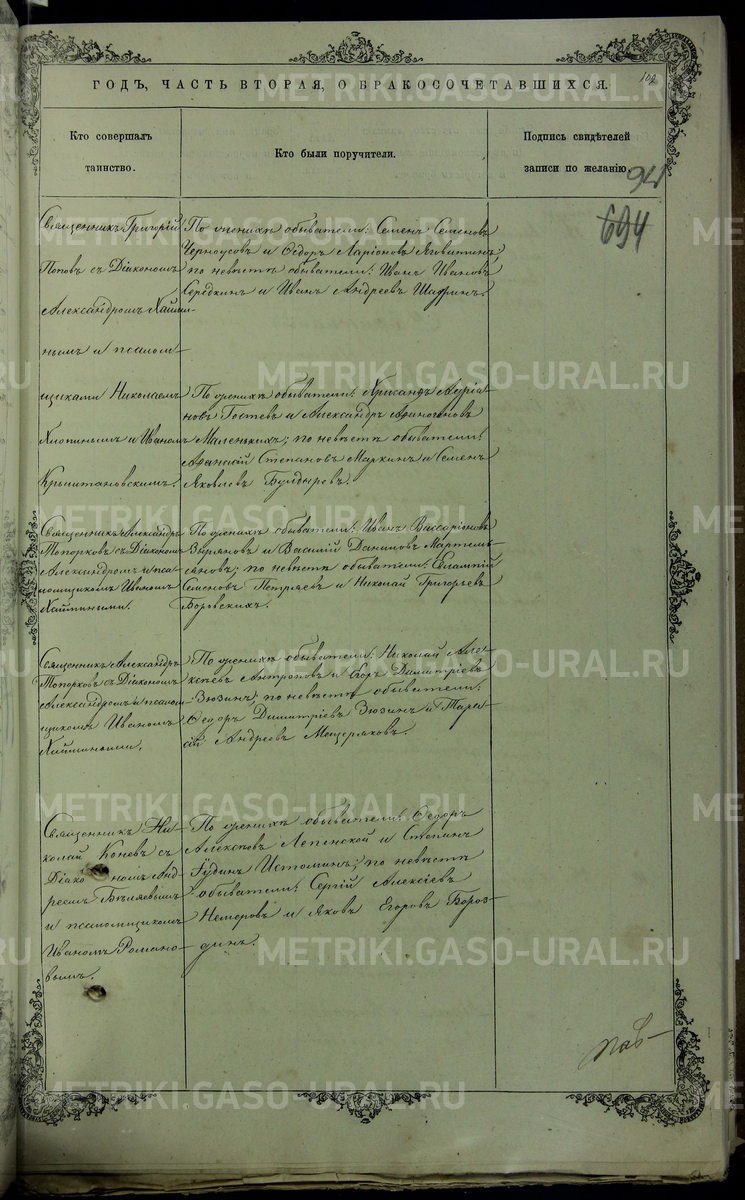 102
ГОДЪ, ЧАСТЬ ВТОРАЯ, О БРАКОСОЧЕТАВШИХСЯ.
Кто совершалъ
таинство.
Кто были поручители.
Подпись свидѣтелей
записи по желанію.
94
694
Священникъ Григорій
Поповъ съ Діакономъ
Александромъ
нымъ и псалом-
щиками Николаемъ
Хлопинымъ и Иваномъ
По женихѣ обыватели: Семенъ Семеновъ
Черноусовъ и Ѳедоръ Ларіоновъ
по невѣстѣ обыватели: Иванъ Ивановъ
Середкинъ и Иванъ Андреевъ Шадринъ.
По женихѣ обыватели: Хрисанфъ Андріа-
новъ Гостевъ и Александръ Афиногеновъ
Маленькихъ; по невѣстѣ обыватели:
Афанасій Степановъ Маркинъ и Семенъ
Яковлевъ Булдыревъ.
Священникъ Александръ
Топорковъ съ Діакономъ
Александромъ и пса-
ломщикомъ Иваномъ
По женихѣ обыватели: Иванъ Виссаріоновъ
Зыряновъ и Василій Даниловъ Мартемь-
яновъ; по невѣстѣ обыватели:
Семеновъ Петряевъ и Николай Григорьевъ
Боровскихъ.
Священникъ Александръ
Топорковъ съ Діакономъ
Александромъ и псалом-
щикомъ Иваномъ
По женихѣ обыватели: Николай Але-
ксѣевъ Антроповъ и Егоръ Димитріевъ
Зюзинъ; по невѣстѣ обыватели:
Ѳедоръ Димитріевъ Зюзинъ и Тара-
сій Андреевъ Мещеряковъ.
Священникъ Ни-
колай Коневъ съ
Діакономъ Анд-
реемъ Бѣляевымъ
и псаломщикомъ
Иваномъ Романо-
вымъ.
По женихѣ обыватели: Ѳедоръ
Алексѣевъ Лепенской и Степанъ
Іудинъ Истоминъ; по невѣстѣ
обыватели: Сергій Алексіевъ
Немеровъ и Яковъ Егоровъ Бороз-
динъ.
METRIKI.GASO-URAL.RU